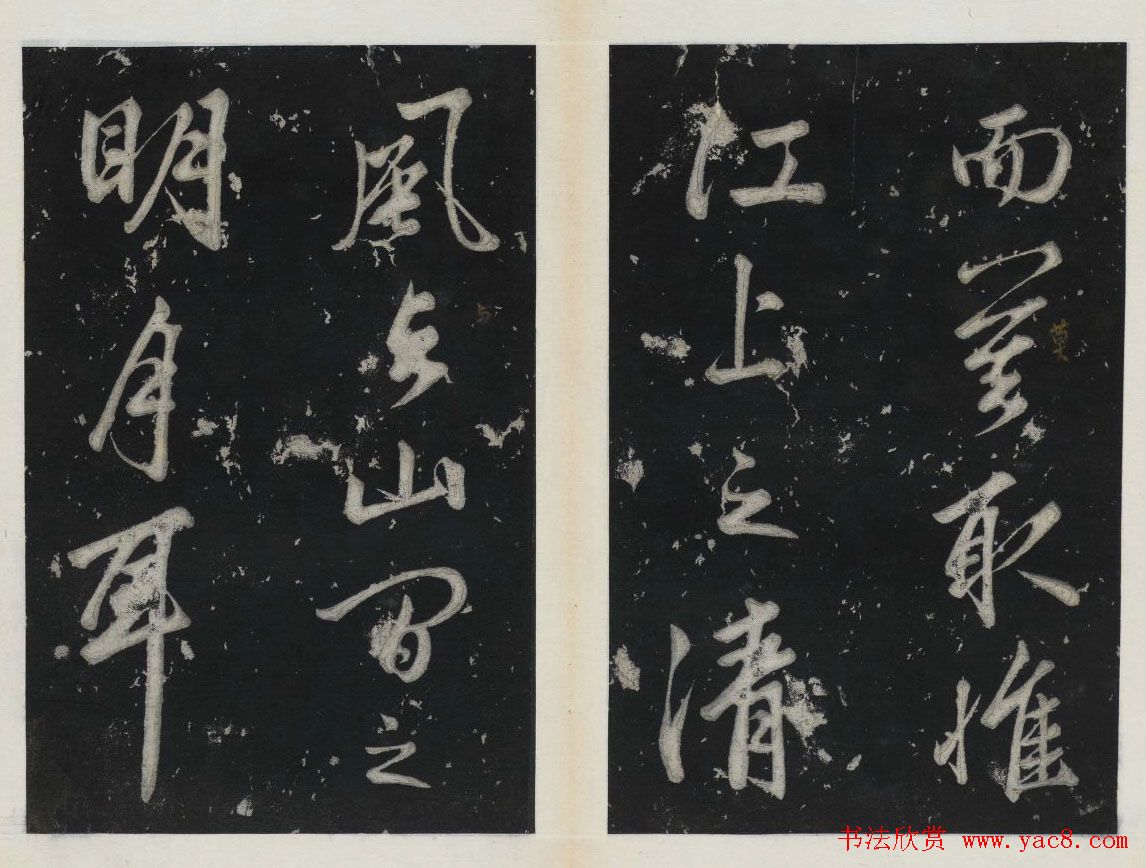 而莫取惟
莫
江上之清
風与山間之
与
明月耳
书法欣赏 www.yac8.com